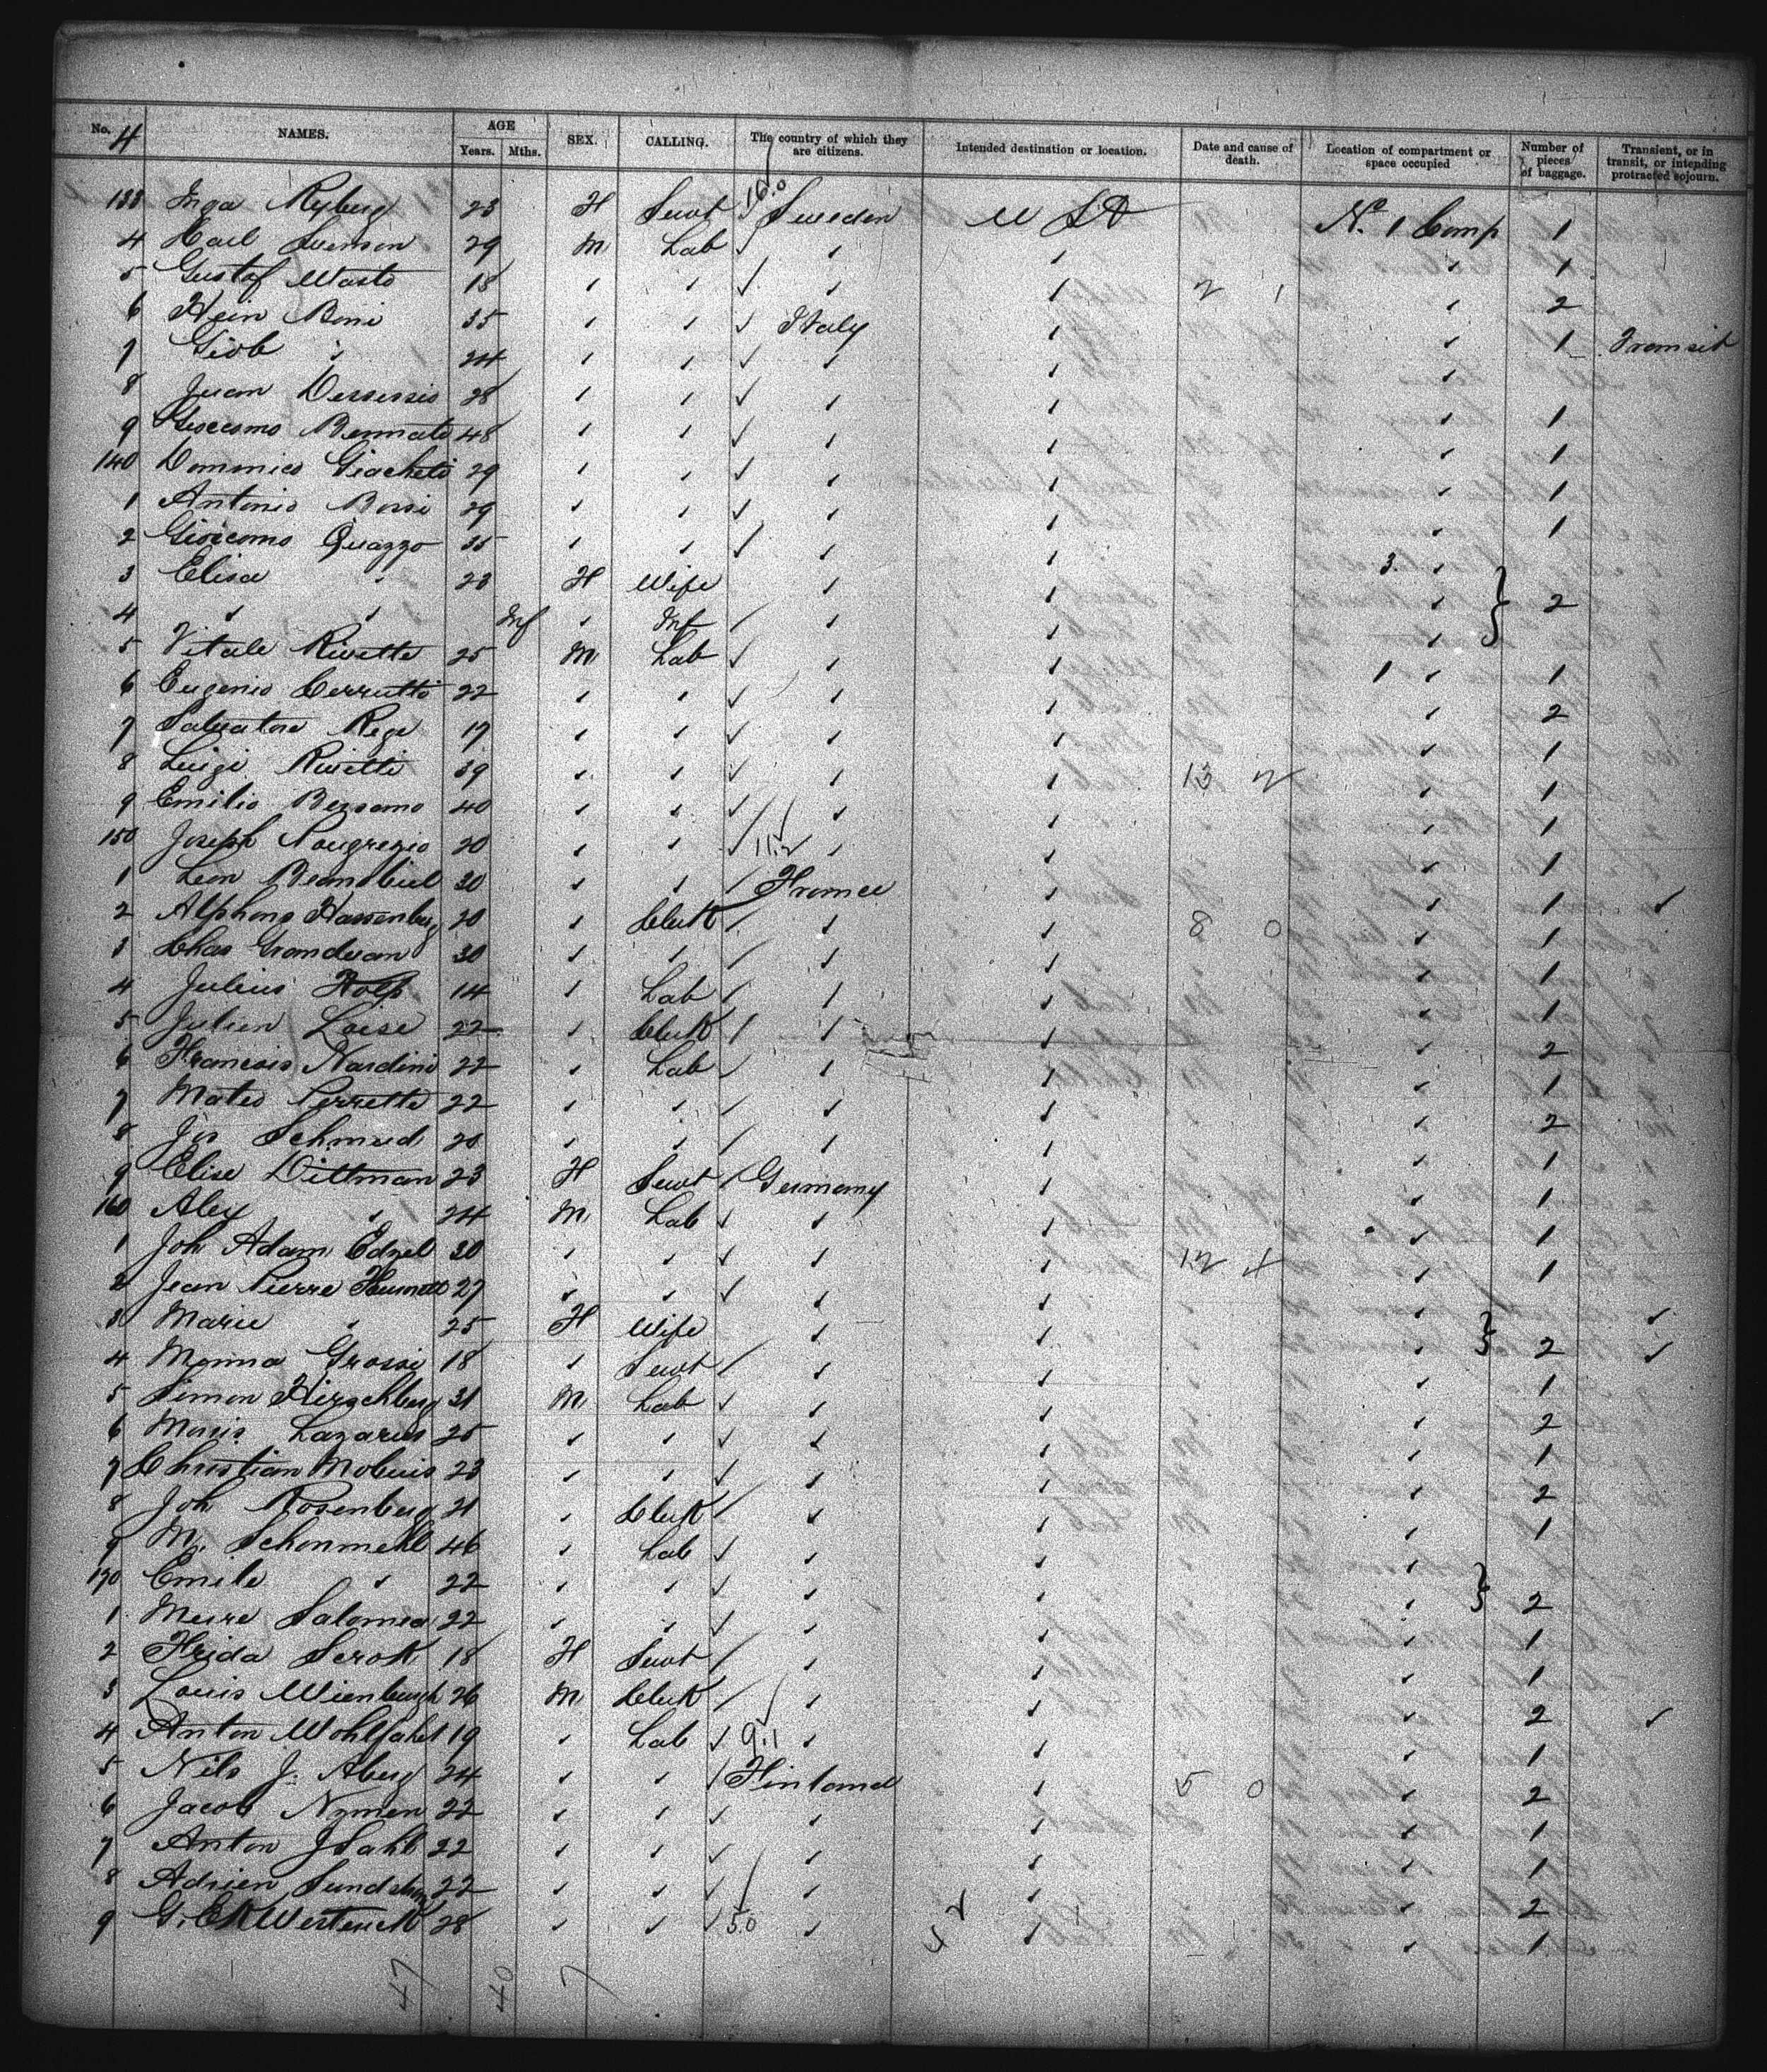 No. 4 NAMES. AGE Years. Mths. SEX. CALLING. The country of which they are citizens. Intended destination or location. Date and cause of death. Location of compartment or space occupied Number of pieces of baggage. Transient, or in transit, or intending protracted sojourn.
16.0
133 Inga Ryberg 23 F Servt ✓ Sweden U St No. 1 Comp 1
4 Carl Svenson 29 M Lab ✓ " " " 1
5 Gustaf Wasto 18 " " ✓ " " 2 1 " 2
6 Hein Boni 35 " " ✓ Italy " " 1 Transit
7 Giob " 24 " " ✓ " " "
8 Juan Dessessio 28 " " ✓ " " " 1
9 Giocomo Bennato 48 " " ✓ " " " 1
140 Domenico Giacheto 29 " " ✓ " " " 1
1 Antonio Rossi 29 " " ✓ " " " 1
2 Giocomo Quazzo 35 " " ✓ " " 3. "
3 Elisa " 23 F Wife " " " } 2
4 " " Inf " Inf / " " "
5 Vitale Rivetto 25 M Lab ✓ " " 1 " 1
6 Eugenio Cerrutti 22 " " ✓ " " " 2
7 Salvatore Rege 19 " " ✓ " " " 1
8 Luigi Rivetti 39 " " ✓ " " 13 2 " 1
9 Emilio Bessamo 40 " " ✓ " " " 1
150 Joseph 20 " " ✓ 11.2 " " " 1
1 Leon 30 " " / France " " 1 ✓
2 Alphons Hassenberg 20 " Clerk / " " 8 0 " 1
3 Chas Grandvan 30 " " / " " " 1
4 Julius Holp 14 " Lab / " " " 1
5 Julien Loise 22 " Clerk / " " " 2
6 Francois Nardini 22 " Lab / " " " 1
7 Mateo Perretto 22 " " / " " " 2
8 Jos Schmid 20 " " / " " " 1
9 Elise Dittman 23 F Servt / Germany " " 1
160 Alex " 24 M Lab ✓ " " " 1
1 Joh Adam Edzel 30 " " ✓ " " 12 4 " 1
2 Jean Pierre 27 " " ✓ " " " ✓
3 Marie " 25 F Wife " " " } 2 ✓
4 Monna Grossi 18 " Servt / " " " 1
5 Simon Hirschberg 31 M Lab ✓ " " " 2
6 Moris Lazarus 25 " " ✓ " " " 1
7 Christian Mobius 23 " " ✓ " " " 2
8 Joh Rosenberg 21 " Clerk / " " " 1
9 M. Schonmehl 46 " Lab ✓ " " "
170 Emile " 22 " " ✓ " " " } 2
1 Meire Salomea 22 " " ✓ " " " 1
2 Frida Serok 18 F Servt / " " " 1
3 Louis Wienburgh 26 M Clerk / " " " 2 ✓
4 Anton Wohlfahrt 19 " Lab ✓ 9.1 " " " 1
5 Nils J. Aberg 24 " " / Finland " 5 0 " 2
6 Jacob Nyman 22 " " ✓ " " " 1
7 Anton J Dahl 22 " " ✓ " " " 1
8 Adrien 22 " " ✓ " " " 2
9 G. E K Westenek 28 " " / 5.0 " " " 1
47 40 7